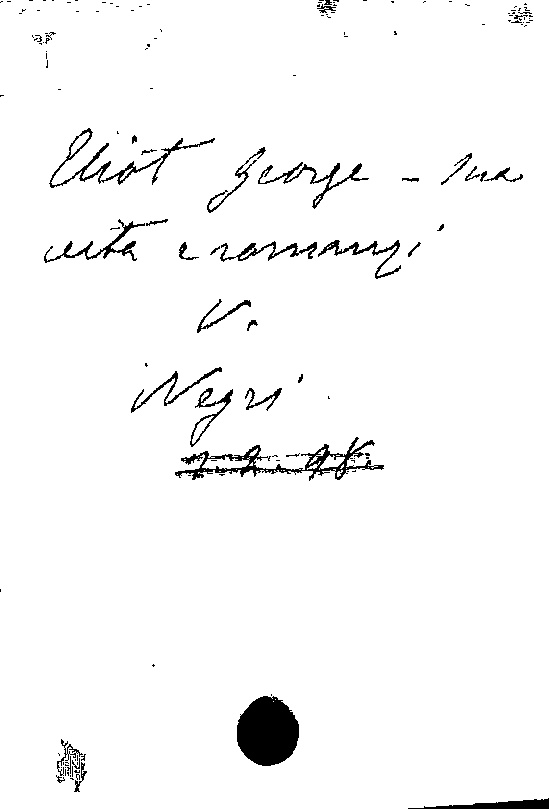 Eliot George - sua
vita e romanzi
V.
Negri